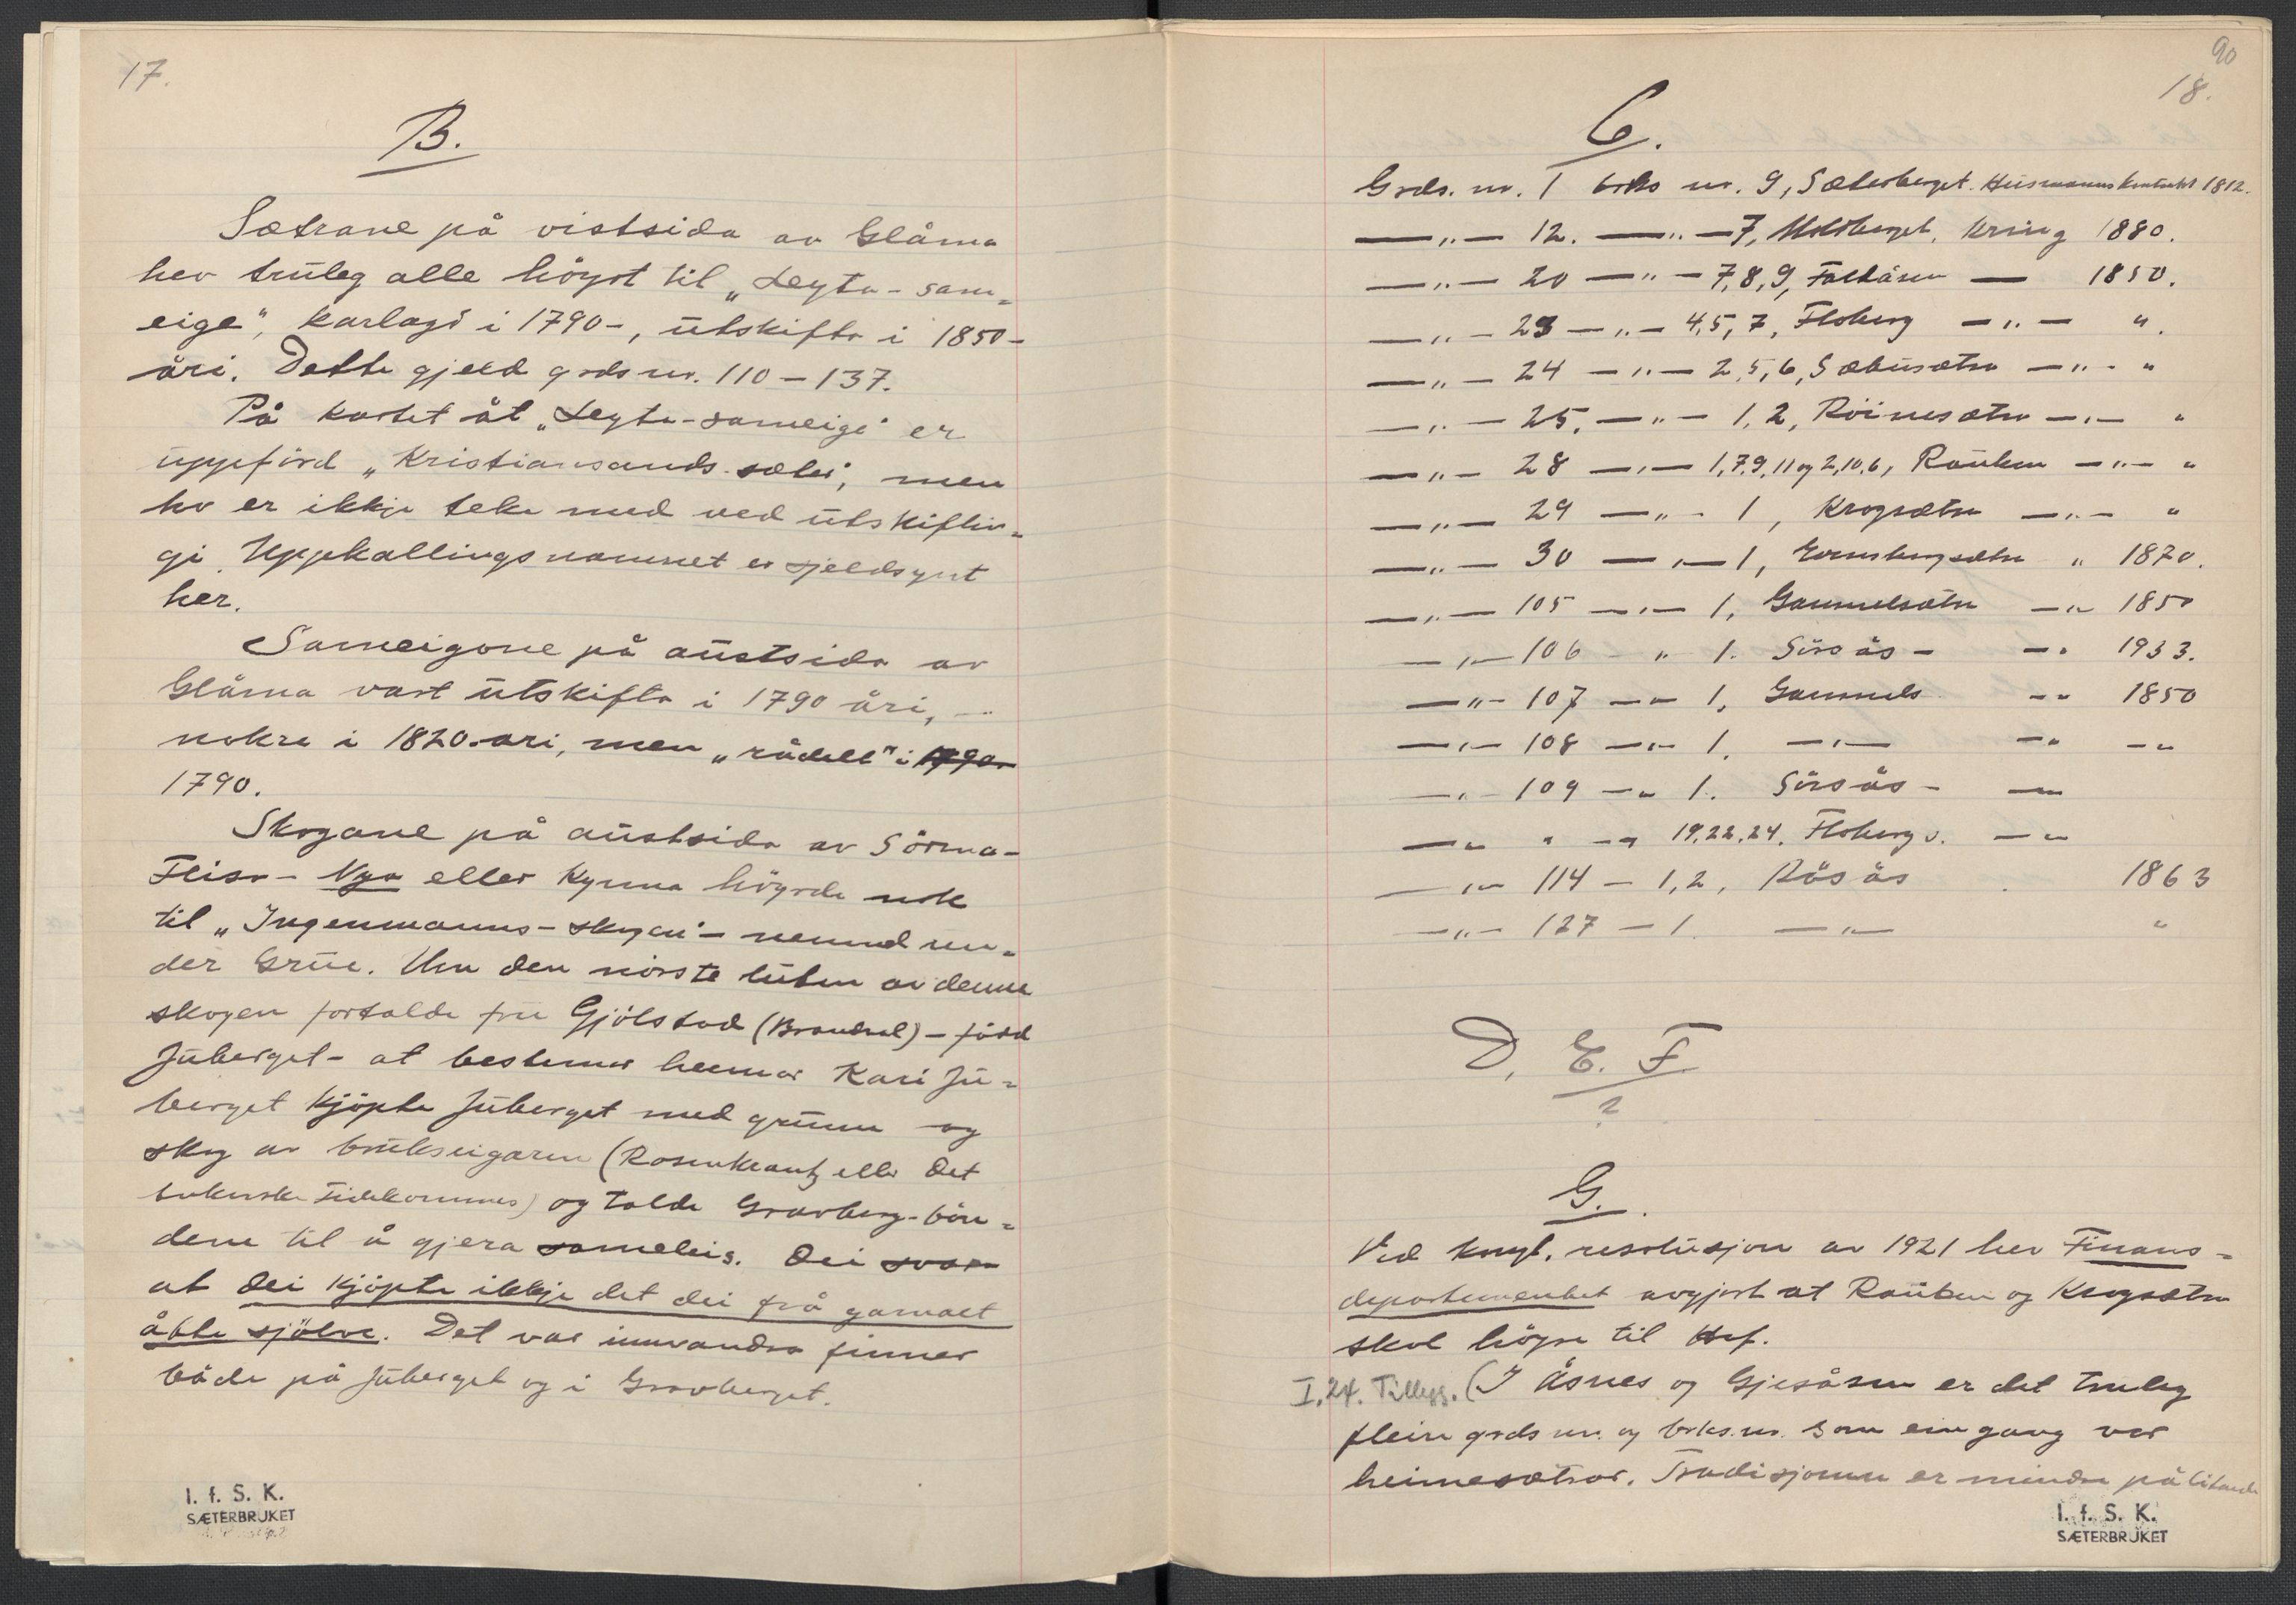 17.
B.
Sætrane på vistsida av Glåma
hev truleg alle höyrt til „Leyta-sam=
eige", karlagd i 1790-, utskifta i 1850-
åri. Dette gjeld grds nr. 110-137.
På kartet åt „Leyta-sameige" er
uppförd „Kristiansands-sæter", men
ho er ikkje teke med ved utskiftin=
gi. Uppkallingsnamnet er sjeldsynt
her.
Sameigone på austsida av
Glåma vart utskifta i 1790 åri, -
nokre i 1820-åri, men „rådelt" i 1790
1790.
Skogane på austsida av Sörma-
Flisa - Nya eller Kynna höyrde nok
til „Ingenmanns-skogen" - nemnd un=
der Grue. Um den nörste luten av denne
skogen fortalde fru Gjölstad (Brandval) - född
Juberget - at bestemor hennar Kari Ju=
berget kjöpte Juberget med grunn og
skog av brukseigaren (Rosenkrantz eller Det
Ankerske Fideikommis) og talde Gravberg-bön=
dene til å gjera sameleis. Dei svara
at dei kjöpte ikkje det dei frå gamalt
åtte sjölve. Det var innvandra finner
både på Juberget og i Gravberget.
I. f. S. K.
SÆTERBRUKET
90
18.
C.
Grds. nr. 1 brks nr. 9, Sæterberget. Husmannskontrakt 1812.
—„— 12. —„— 7, Moldberget, kring 1880.
—„— 20 —„— 7,8,9, Faltåsen — 1850.
—„— 23 —„— 4,5,7, Floberg —„— „.
—„— 24 —„— 2,5,6, Sæbusætra —„— „
—„— 25. —„— 1,2, Röinesætra —„— „
—„— 28 —„— 1,7,9,11 og 2,10,6, Rauken —„— „
—„— 29 —„— 1, Krogsætra —„— „
—„— 30 —„— 1, Ormsbergsætra „ 1870.
—„— 105 —„— 1, Gammelsætra —„— 1850
—„— 106 — „ 1. Sörsås- —„ 1933.
—„— 107 —„— 1, Gammels —„ 1850
—„— 108 —„— 1. —„— —„ —„
—„— 109 —„ 1. Sörsås- —„
—„ „ —„ 19,22,24. Floberg s. —„
—„— 114 — 1,2, Råsås 1863
—„— 127 — 1. —„— „
D. E. F
?
G.
Ved kongl. resolusjon av 1921 hev Finans=
departementet avgjort at Rauken og Krogsætra
skal höyra til Hof.
I.24. Tillegg. (I Åsnes og Gjesåsen er det truleg
fleire grds nr. og brks.nr. som ein gong var
heimesætrar. Tradisjonen er mindre pålitande
I. f. S. K.
SÆTERBRUKET